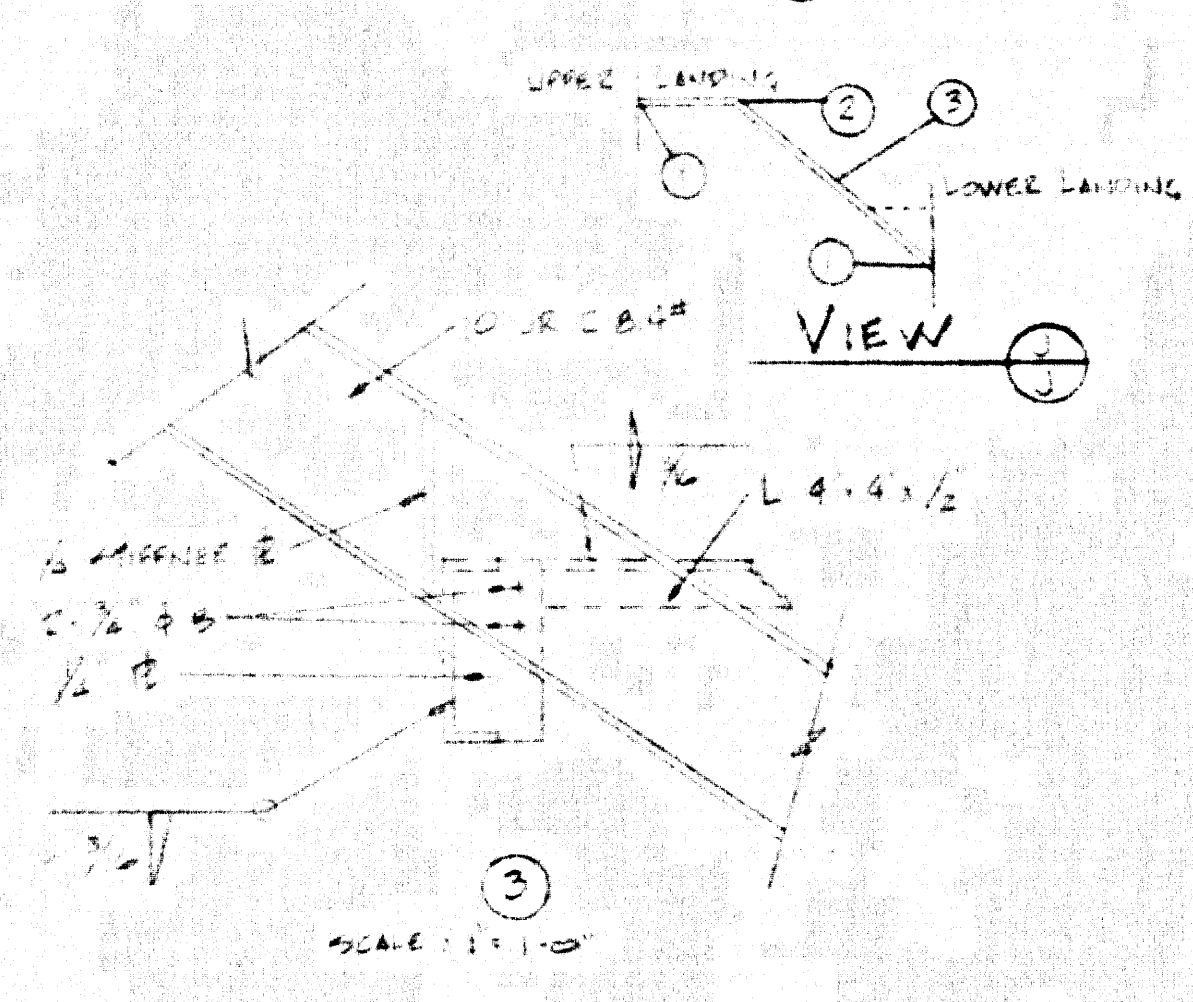 UPPER LANDING
2
3
1
LOWER LANDING
1
VIEW
J
J
JR C 8.4#
3/16
L 4" x 4" x 1/2"
STIFFNER PL
2-3/4" φ B
PL
3/16
3
SCALE: 1" = 1'-0"